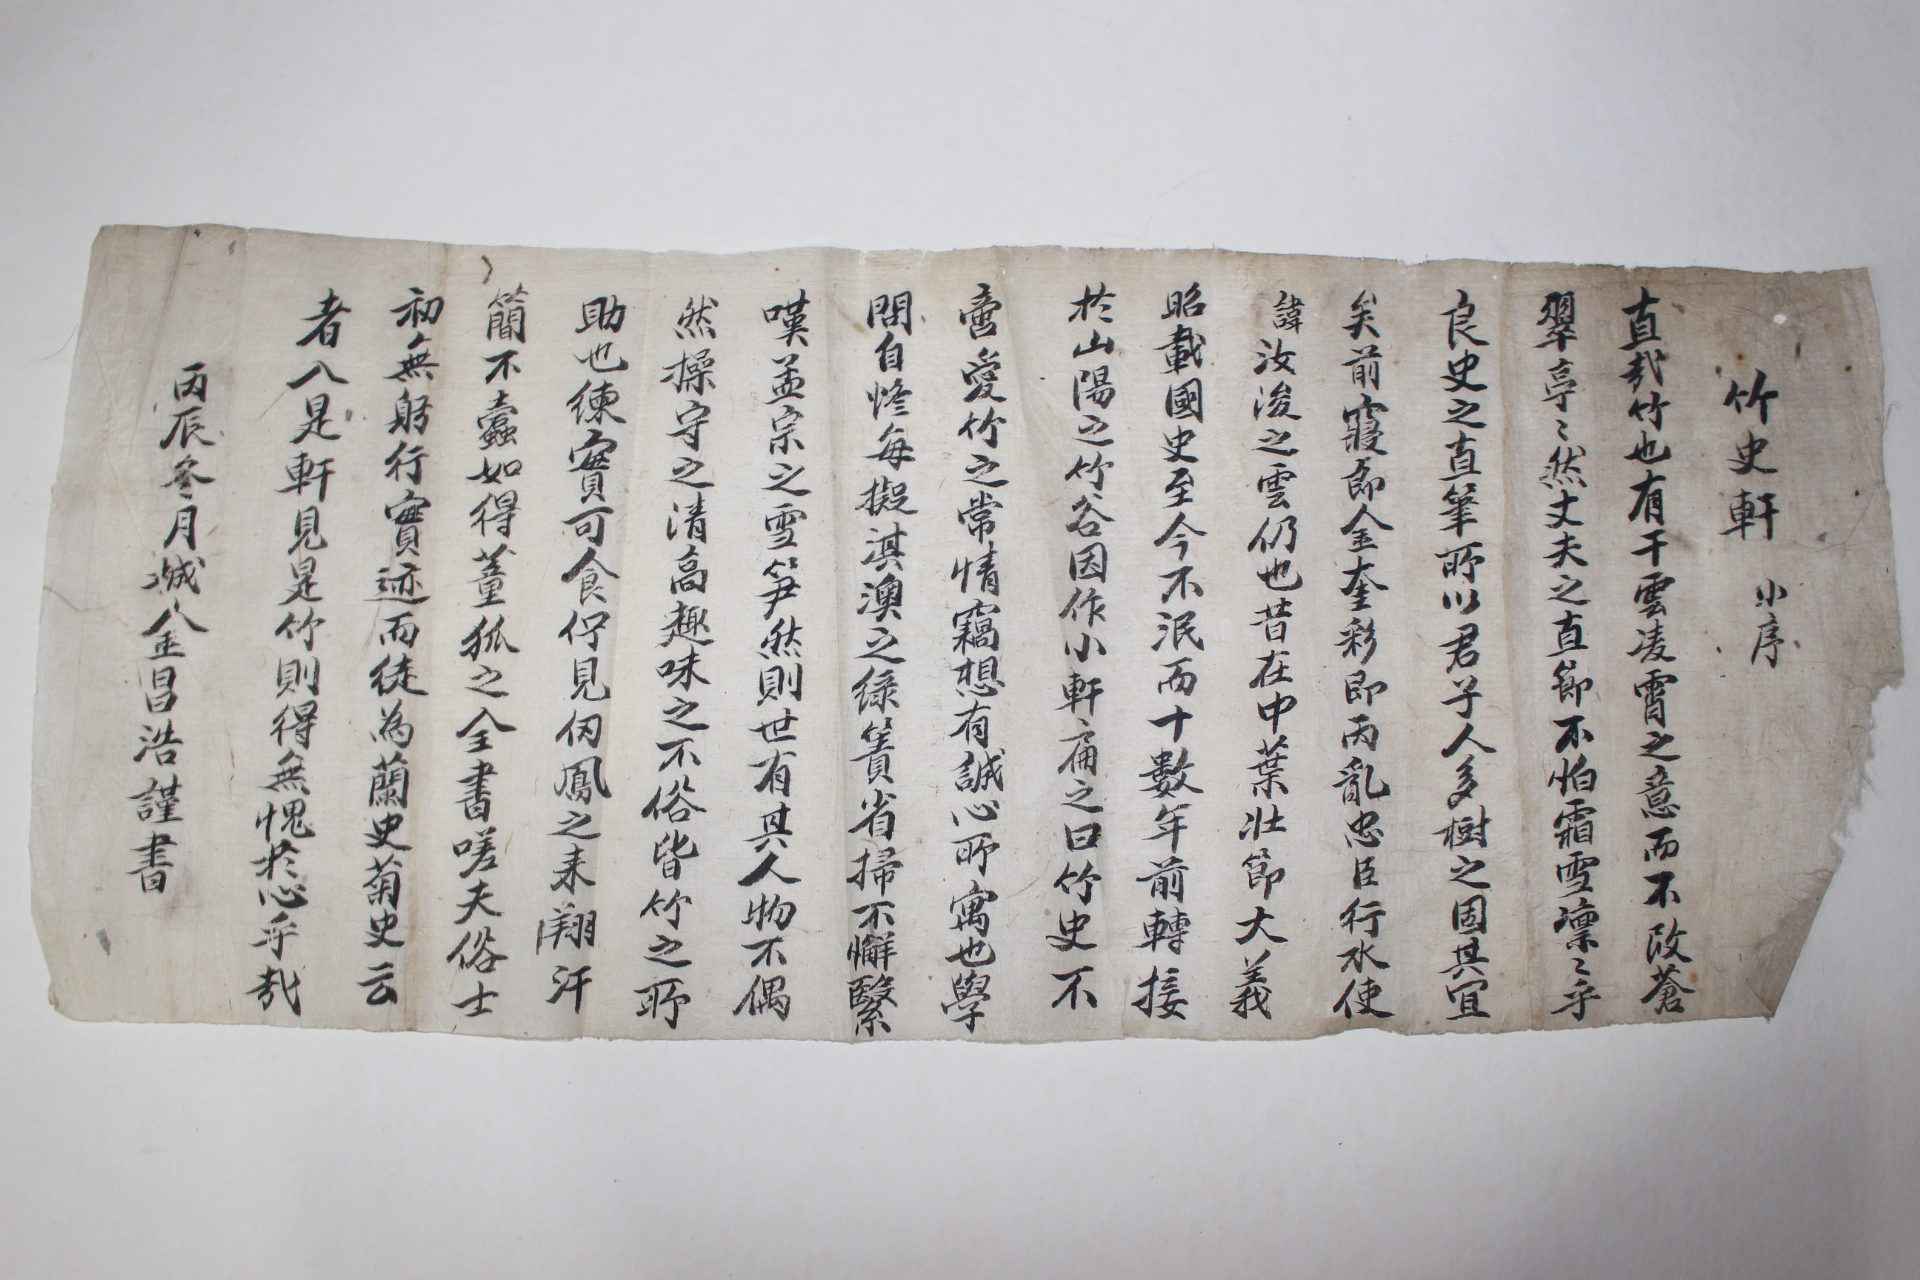 竹史軒 小序
直哉竹也有干雲凌霄之意而不改蒼
翠亭〻然丈夫之直節不怕霜雪凛〻乎
良史之直筆所以君子人多樹之固其宜
矣前寢郎金奎彩即丙亂忠臣行水使
諱汝浚之雲仍也昔在中葉壯節大義
昭載國史至今不泯而十數年前轉接
於山陽之竹谷因作小軒扁之曰竹史不
啻愛竹之常情竊想有誠心所寓也學
問自修每擬淇澳之綠簀省掃不懈繄
嘆孟宗之雪笋然則世有其人物不偶
然操守之清高趣味之不俗皆竹之所
助也練實可食佇見伱鳳之来翔汗
簡不蠹如得董狐之全書嗟夫俗士
初無躬行實迹而徒為蘭史菊史云
者入是軒見是竹則得無愧於心乎哉
丙辰冬月 金昌浩謹書